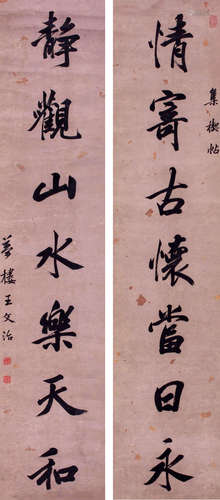 集禊帖
情寄古懷當日永
靜觀山水樂天和
夢樓王文治